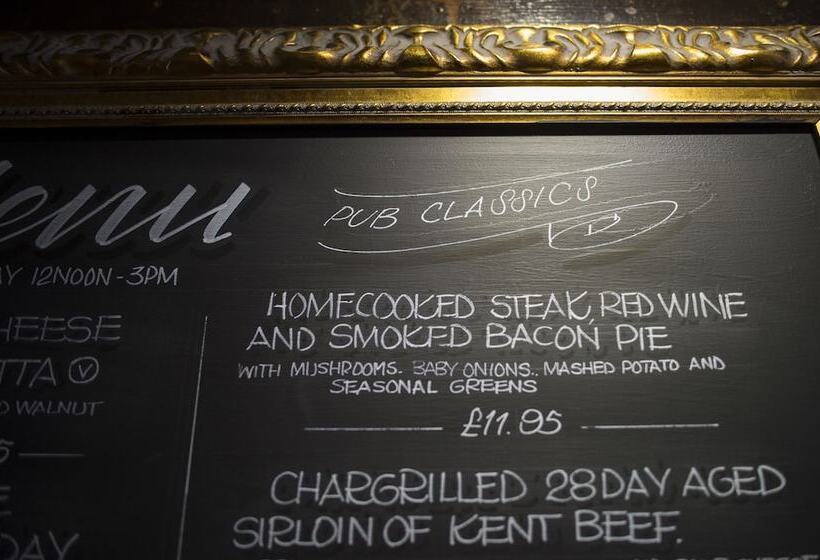 enu
AY 12NOON-3PM
HEESE
TTA V
D WALNUT
5
DAY
PUB CLASSICS
HOMECOOKED STEAK, RED WINE
AND SMOKED BACON PIE
WITH MUSHROOMS. BABY ONIONS.. MASHED POTATO AND
SEASONAL GREENS
£11.95
CHARGRILLED 28 DAY AGED
SIRLOIN OF KENT BEEF.